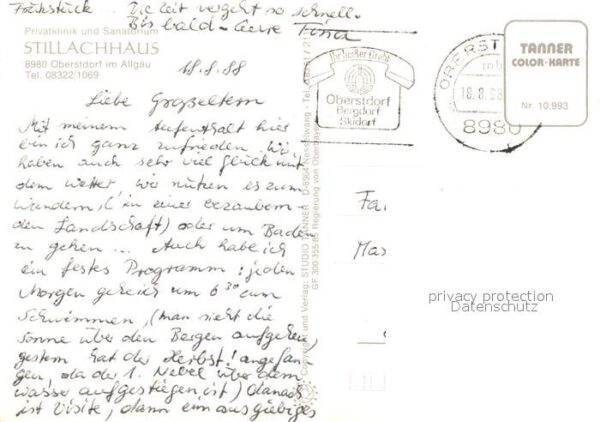 Frühstück... Die Zeit vergeht so schnell.
Bis bald - Eure Tina
Privatklinik und Sanatorium
STILLACHHAUS
8980 Oberstdorf im Allgäu
Tel. 08322/1069
18.8.88
Liebe Großeltern
Mit meinem Aufenthalt hier
bin ich ganz zufrieden. Wir
haben auch sehr viel Glück mit
dem Wetter, wir nützen es zum
Wandern (in einer bezaubern
den Landschaft) oder um Baden
zu gehen... Auch habe ich
ein festes Programm: jeden
Morgen gehe ich um 6 30 zum
Schwimmen, (man sieht die
Sonne über den Bergen aufgehen,
gestern hat der Herbst! angefan
gen, da der 1. Nebel über dem
Wasser aufgestiegen ist) danach
ist Visite, dann ein ausgiebiges
Copyright und Verlag: STUDIO TANNER · D-8964 Nesselwang · Tel.
GF 300/355/85 Regierung von Oberbayern
Ihr heißer Draht
Oberstdorf
Bergdorf
Skidorf
OBERST
mb
18.8.88
8980
TANNER
COLOR-KARTE
Nr. 10.993
Fa
Mas
privacy protection
Datenschutz